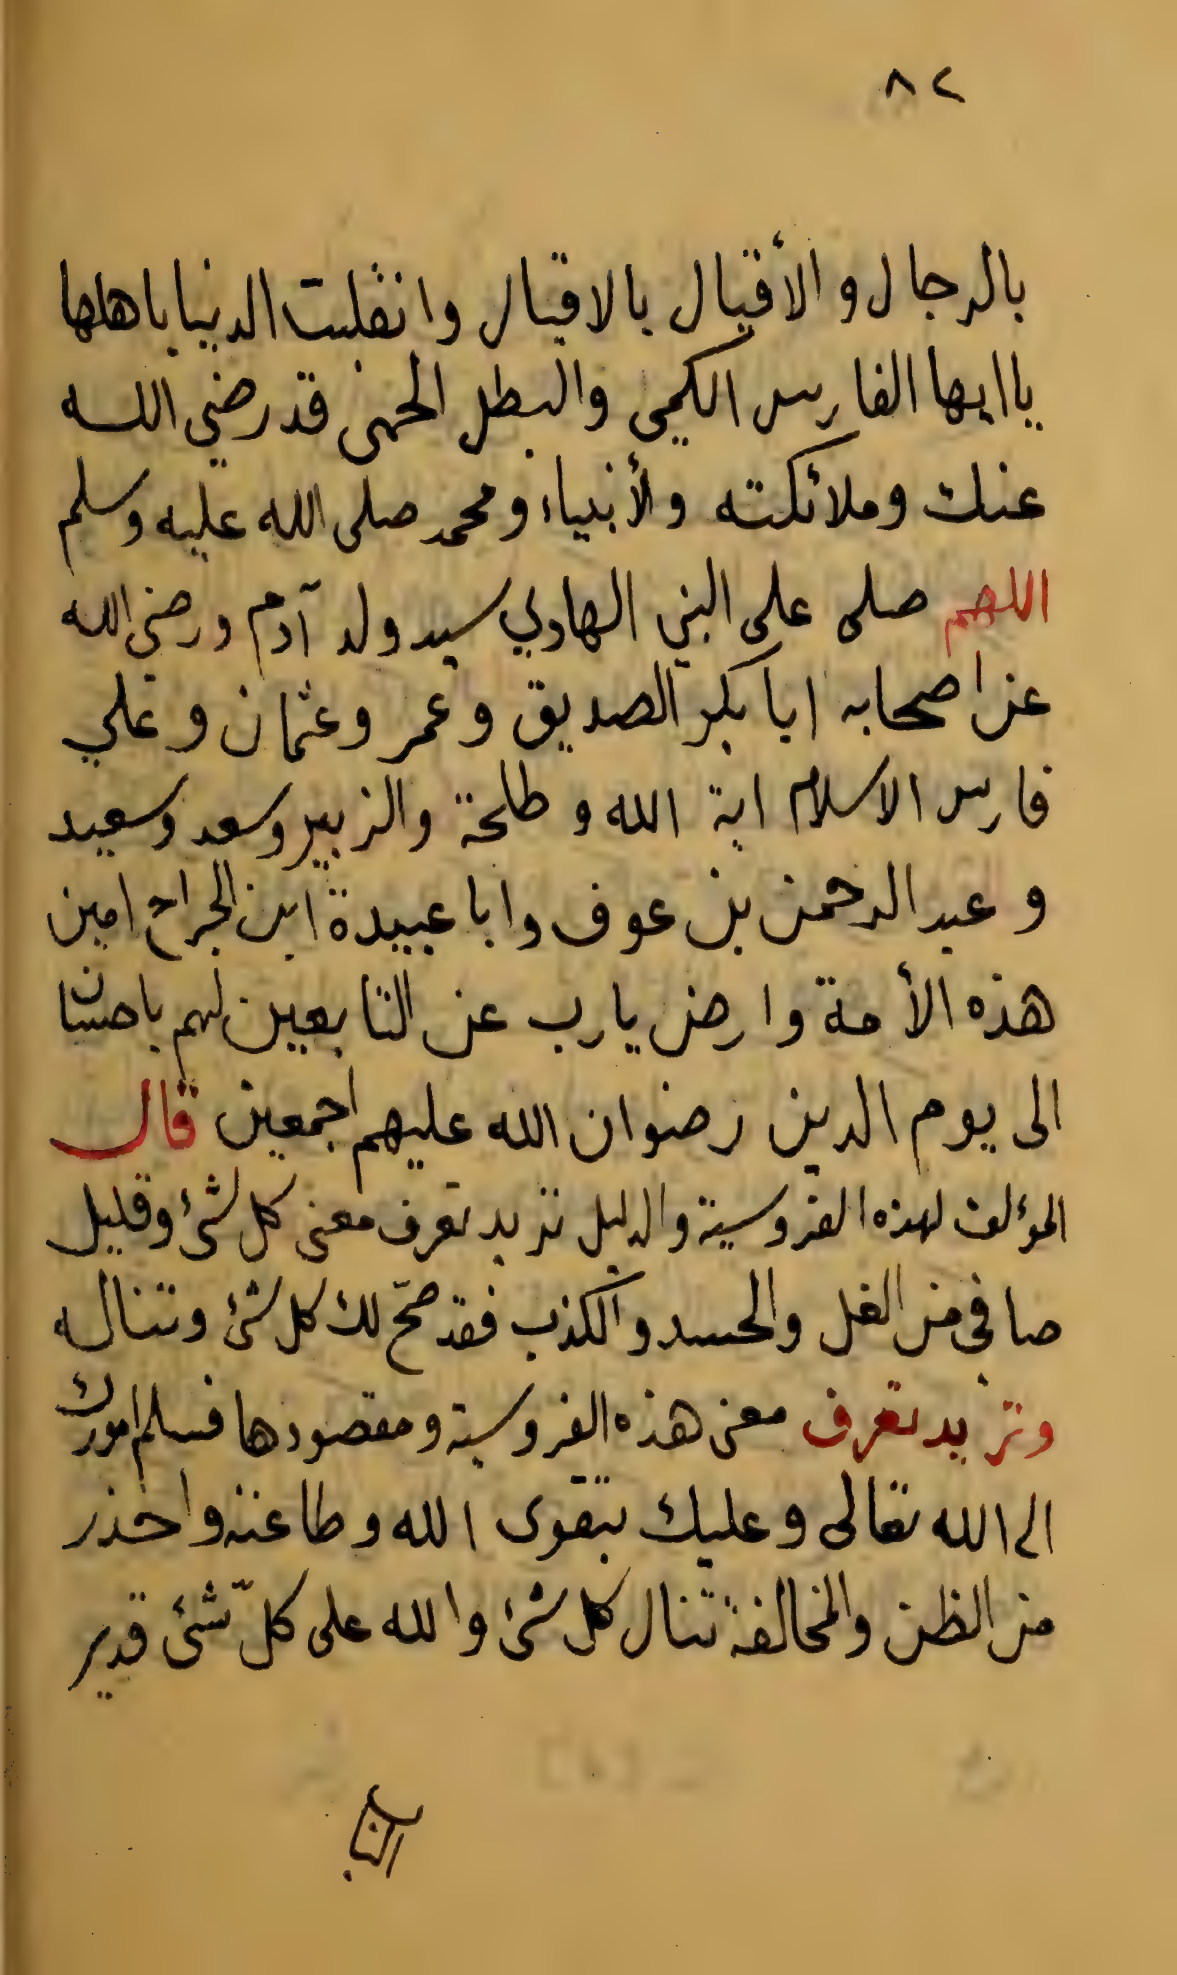 ٨٢
بالرجال والأقيال بالاقيال وانقلبت الدنيا باهلها
يا ايها الفارس الكمي والبطل الحمى قد رضي الله
عنك وملائكته والأنبياء ومحمد صلى الله عليه وسلم
اللهم صلى على النبي الهادي سيد ولد آدم ورضى الله
عن اصحابه ابا بكر الصديق وعمر وعثمان وعلي
فارس الاسلام اية الله وطلحة والزبير وسعد وسعيد
وعبد الرحمن بن عوف وابا عبيدة ابن الجراح امين
هذه الأمة وارض يا رب عن التابعين لهم باحسان
الى يوم الدين رضوان الله عليهم اجمعين قال
المؤلف لهذه الفروسية والدليل تريد تعرف معنى كل شئ وقليل
صافى من الغل والحسد والكذب فقد صحّ لك كل شئ وتناله
وتريد تعرف معنى هذه الفروسية ومقصودها فسلم امورك
الى الله تعالى وعليك بتقوى الله وطاعته واحذر
من الظن والمخالفة تنال كل شئ والله على كلّ شئ قدير